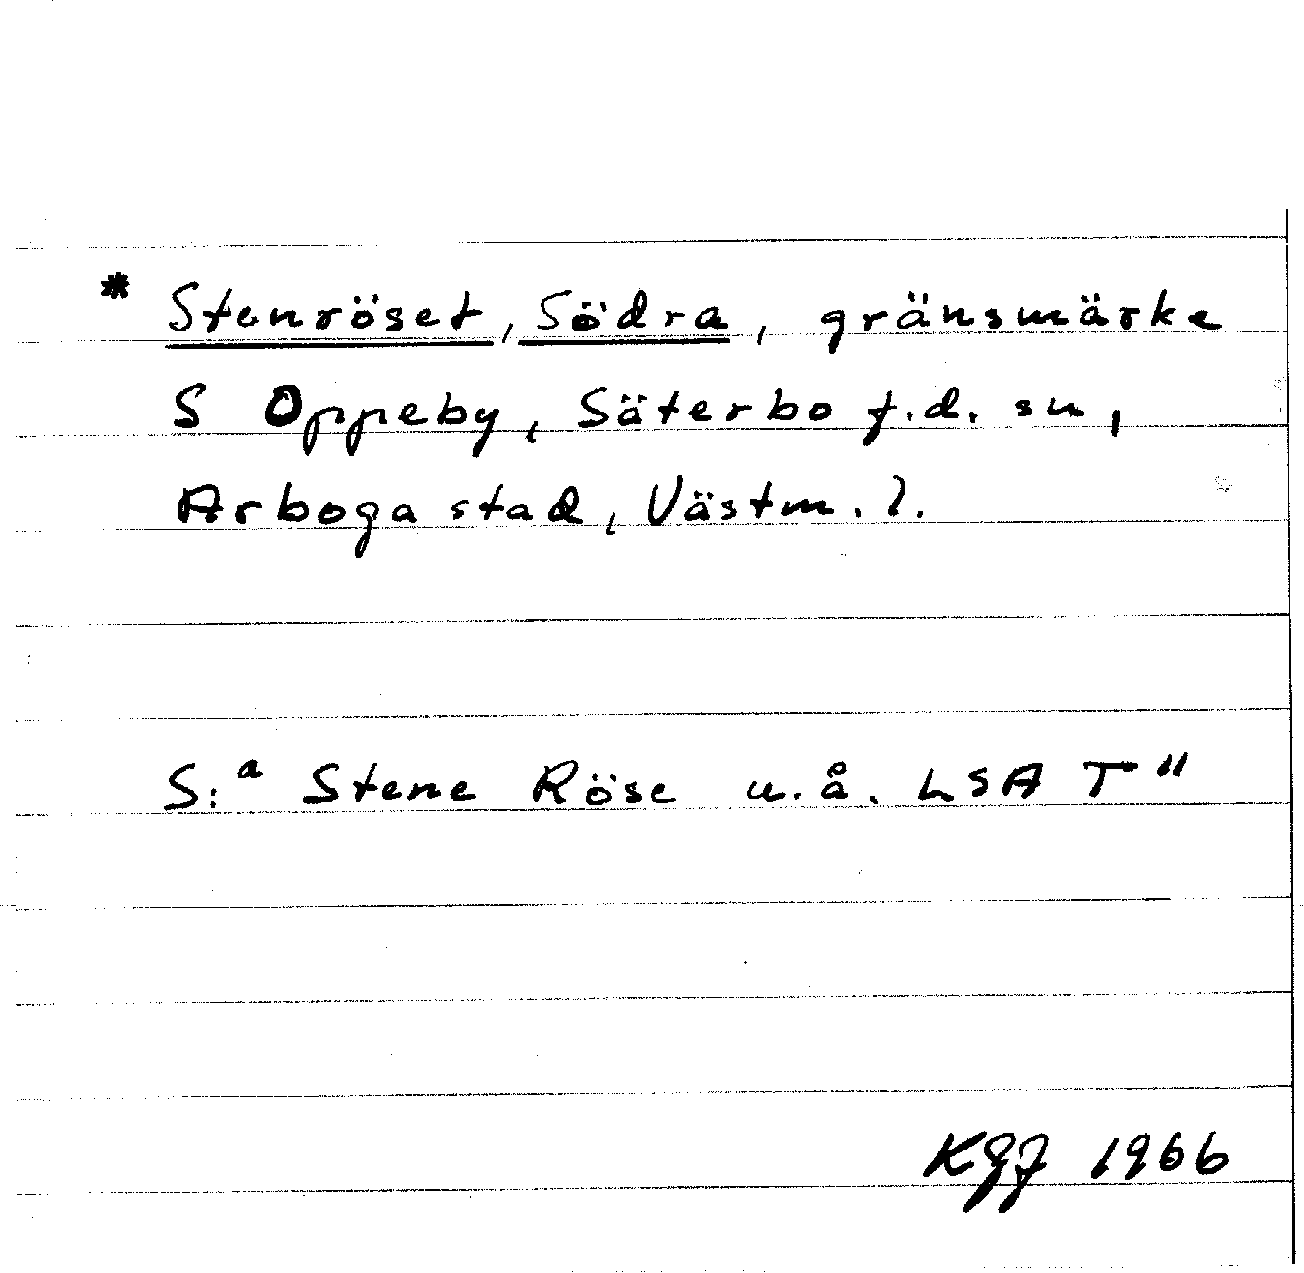 * Stenröset, Södra, gränsmärke
S Oppeby, Säterbo f.d. sn,
Arboga stad, Västm. l.
S:a Stene Röse u.å. LSA T"
KGJ 1966